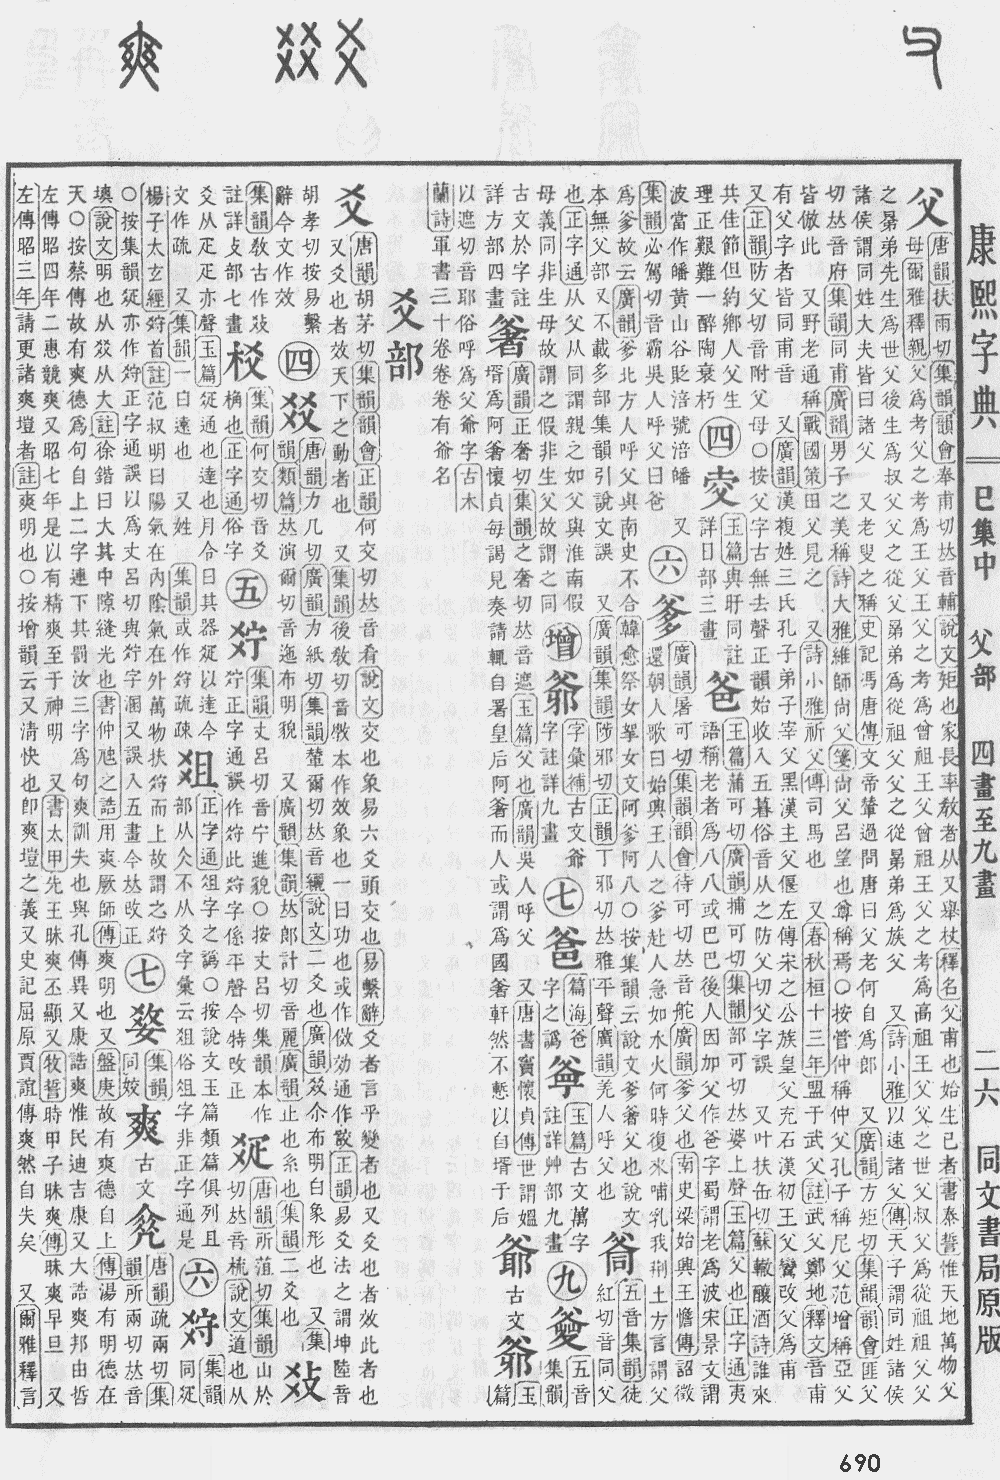 康熙字典 巳集中 父部 四畫至九畫 二六 同文書局原版
父 唐韻扶雨切集韻韻會奉甫切𠀤音輔說文矩也家長率敎者从又舉杖釋名父甫也始生己者書泰誓惟天地萬物父
母爾雅釋親父爲考父之考爲王父王父之考爲曾祖王父曾祖王父之考爲高祖王父父之世父叔父爲從祖祖父父
之晜弟先生爲世父後生爲叔父父之從父晜弟爲從祖父父之從晜弟爲族父 又詩小雅以速諸父傳天子謂同姓諸侯
諸侯謂同姓大夫皆曰諸父 又老叟之稱史記馮唐傳文帝輦過問唐曰父老何自爲郎 又廣韻方矩切集韻韻會匪父
切𠀤音府集韻同甫廣韻男子之美稱詩大雅維師尙父箋尙父呂望也尊稱焉○按管仲稱仲父孔子稱尼父范增稱亞父
皆倣此 又野老通稱戰國策田父見之 又詩小雅祈父傳司馬也 又春秋桓十三年盟于武父註武父鄭地釋文音甫
有父字者皆同甫音 又廣韻漢複姓三氏孔子弟子宰父黑漢主父偃左傳宋之公族皇父充石漢初王父鸞改父爲甫
又正韻防父切音附父母○按父字古無去聲正韻始收入五暮俗音从之防父切切父字誤 又叶扶缶切蘇轍釀酒詩誰來
共佳節但約鄕人父生
理正艱難一醉陶衰朽
四
玉篇與旰同註
詳日部三畫
爸 玉篇蒲可切廣韻捕可切集韻部可切𠀤婆上聲玉篇父也正字通夷
語稱老者爲八八或巴巴後人因加父作爸字蜀謂老爲波宋景文謂
波當作皤黃山谷貶涪號涪皤 又
集韻必駕切音霸吳人呼父曰爸
六
爹 廣韻屠可切集韻韻會待可切𠀤音舵廣韻爹父也南史梁始興王憺傳詔徵
還朝人歌曰始興王人之爹赴人急如水火何時復來哺乳我荆土方言謂父
爲爹故云廣韻爹北方人呼父與南史不合韓愈祭女挐女文阿爹阿八○按集韻云說文爹奢父也說文
本無父部又不載多部集韻引說文誤 又廣韻集韻陟邪切正韻丁邪切𠀤雅平聲廣韻羌人呼父也
五音集韻徒
紅切音同父
也正字通从父从同謂親之如父與淮南假
母義同非生母故謂之假非生父故謂之同
增 爺 字彙補古文爺
字註詳九畫
七 爸 篇海爸
字之譌
玉篇古文萬字
註詳艸部九畫
九
五音
集韻
古文於字註
詳方部四畫
奢 廣韻正奢切集韻之奢切𠀤音遮玉篇父也廣韻吳人呼父 又唐書竇懷貞傳世謂媼
壻爲阿奢懷貞每謁見奏請輒自署皇后阿奢而人或謂爲國奢軒然不慙以自壻于后
爺 古文 爺 玉
篇
以遮切音耶俗呼爲父爺字古木
蘭詩軍書三十卷卷卷有爺名
爻部
爻 唐韻胡茅切集韻韻會正韻何交切𠀤音肴說文交也象易六爻頭交也易繫辭爻者言乎變者也又爻也者效此者也
又爻也者效天下之動者也 又集韻後敎切音效本作效象也一曰功也或作倣効通作敎正韻易爻法之謂坤陸音
胡孝切按易繫
辭今文作效
四 㸚 唐韻力几切廣韻力紙切集韻輦爾切𠀤音邐說文二爻也廣韻㸚尒布明白象形也 又集
韻類篇𠀤演爾切音迤布明貌 又廣韻集韻𠀤郎計切音麗廣韻止也系也集韻二爻也
集韻敎古作
註詳攴部七畫
集韻何交切音爻
桷也正字通俗字
五
集韻丈呂切音宁進貌○按丈呂切集韻本作
正字通誤作此字係平聲今特改正
唐韻所菹切集韻山於
切𠀤音梳說文道也从
爻从疋疋亦聲玉篇通也達也月令日其器以達今
文作疏 又集韻一曰遠也 又姓 集韻或作疏疎
爼 正字通俎字之譌○按說文玉篇類篇俱列且
部从仌不从爻字彙云爼俗俎字非正字通是
六
集韻
同
楊子太玄經首註范叔明曰陽氣在內陰氣在外萬物扶而上故謂之
○按集韻亦作正字通誤以爲丈呂切與字溷又誤入五畫今𠀤改正
七
集韻
同姣
爽 古文
唐韻疏兩切集
韻所兩切𠀤音
塽說文明也从㸚从大註徐鍇曰大其中隙縫光也書仲虺之誥用爽厥師傳爽明也又盤庚故有爽德自上傳湯有明德在
天○按蔡傳故有爽德爲句自上二字連下其罰汝三字爲句爽訓失也與孔傳異又康誥爽惟民迪吉康又大誥爽邦由哲
左傳昭四年二惠競爽又昭七年是以有精爽至于神明 又書太甲先王昧爽丕顯又牧誓時甲子昧爽傳昧爽早旦 又
左傳昭三年請更諸爽塏者註爽明也○按增韻云又淸快也卽爽塏之義又史記屈原賈誼傳爽然自失矣 又爾雅釋言
690